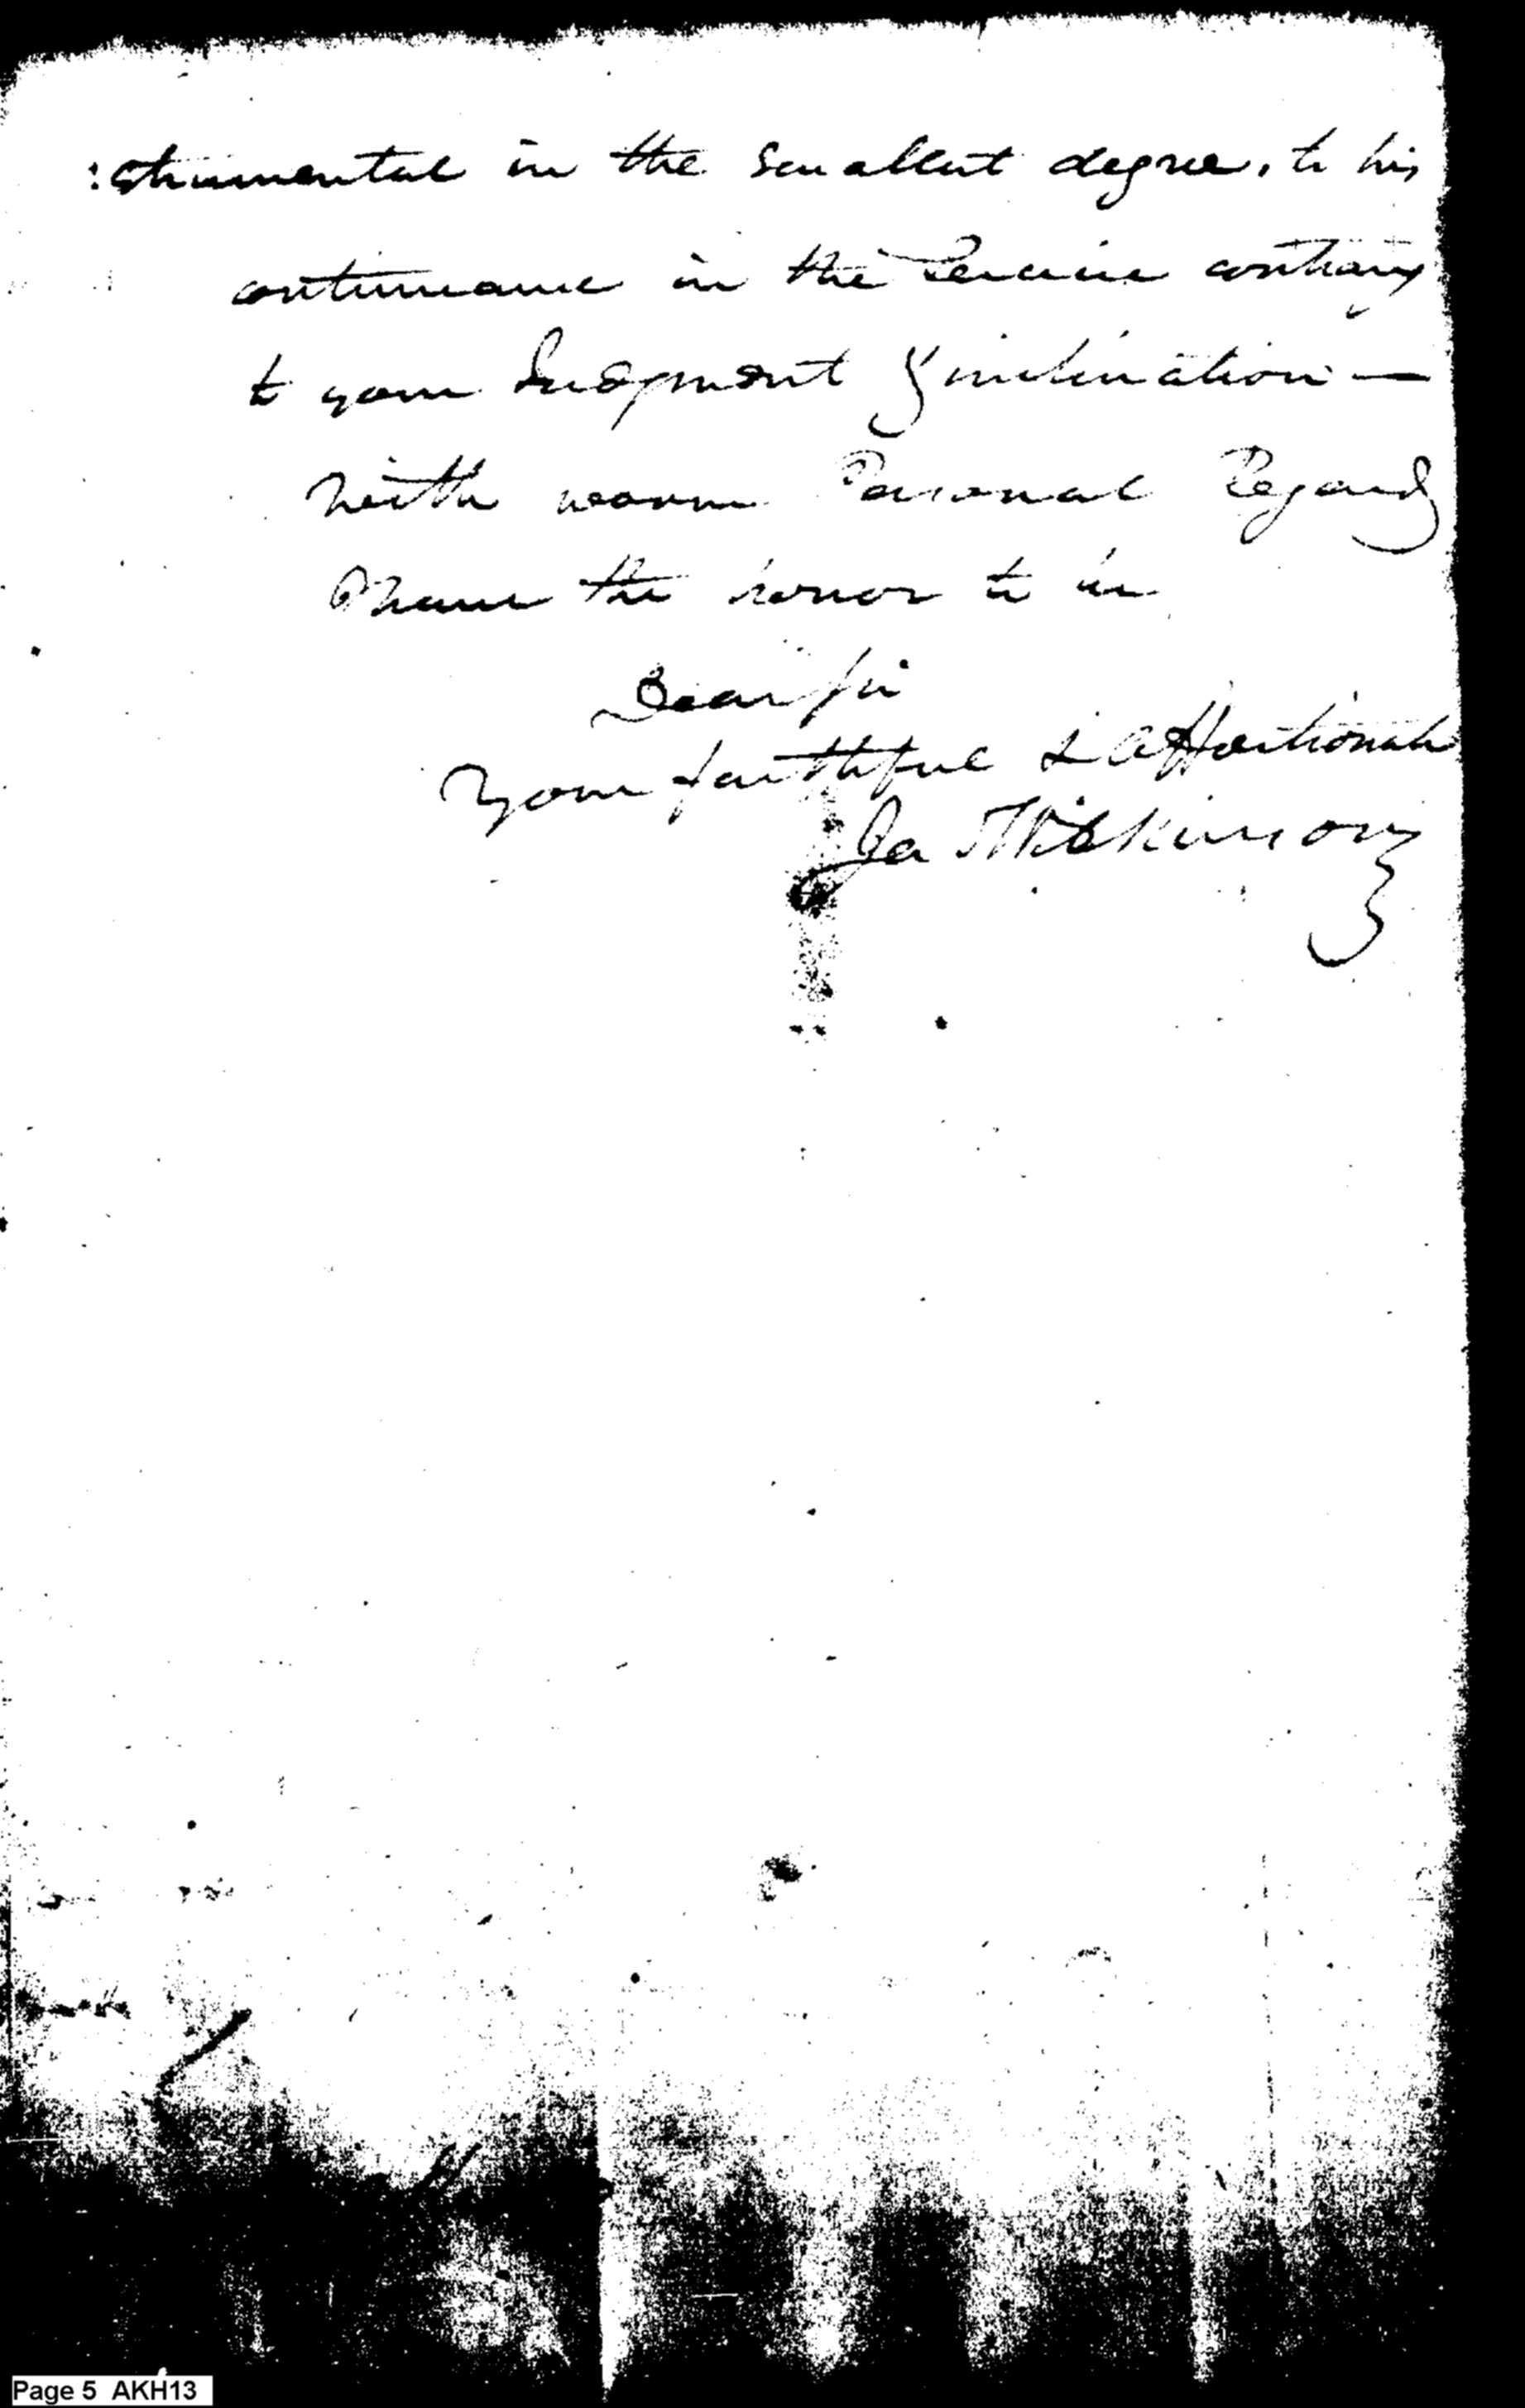 :strumental in the smallest degree, to his
continuance in the Service contrary
to your Judgment & inclination —
With warm Personal Regard
I have the honor to be
Dear Sir
Your faithful & affectionate
Ja Wilkinson
Page 5 AKH13